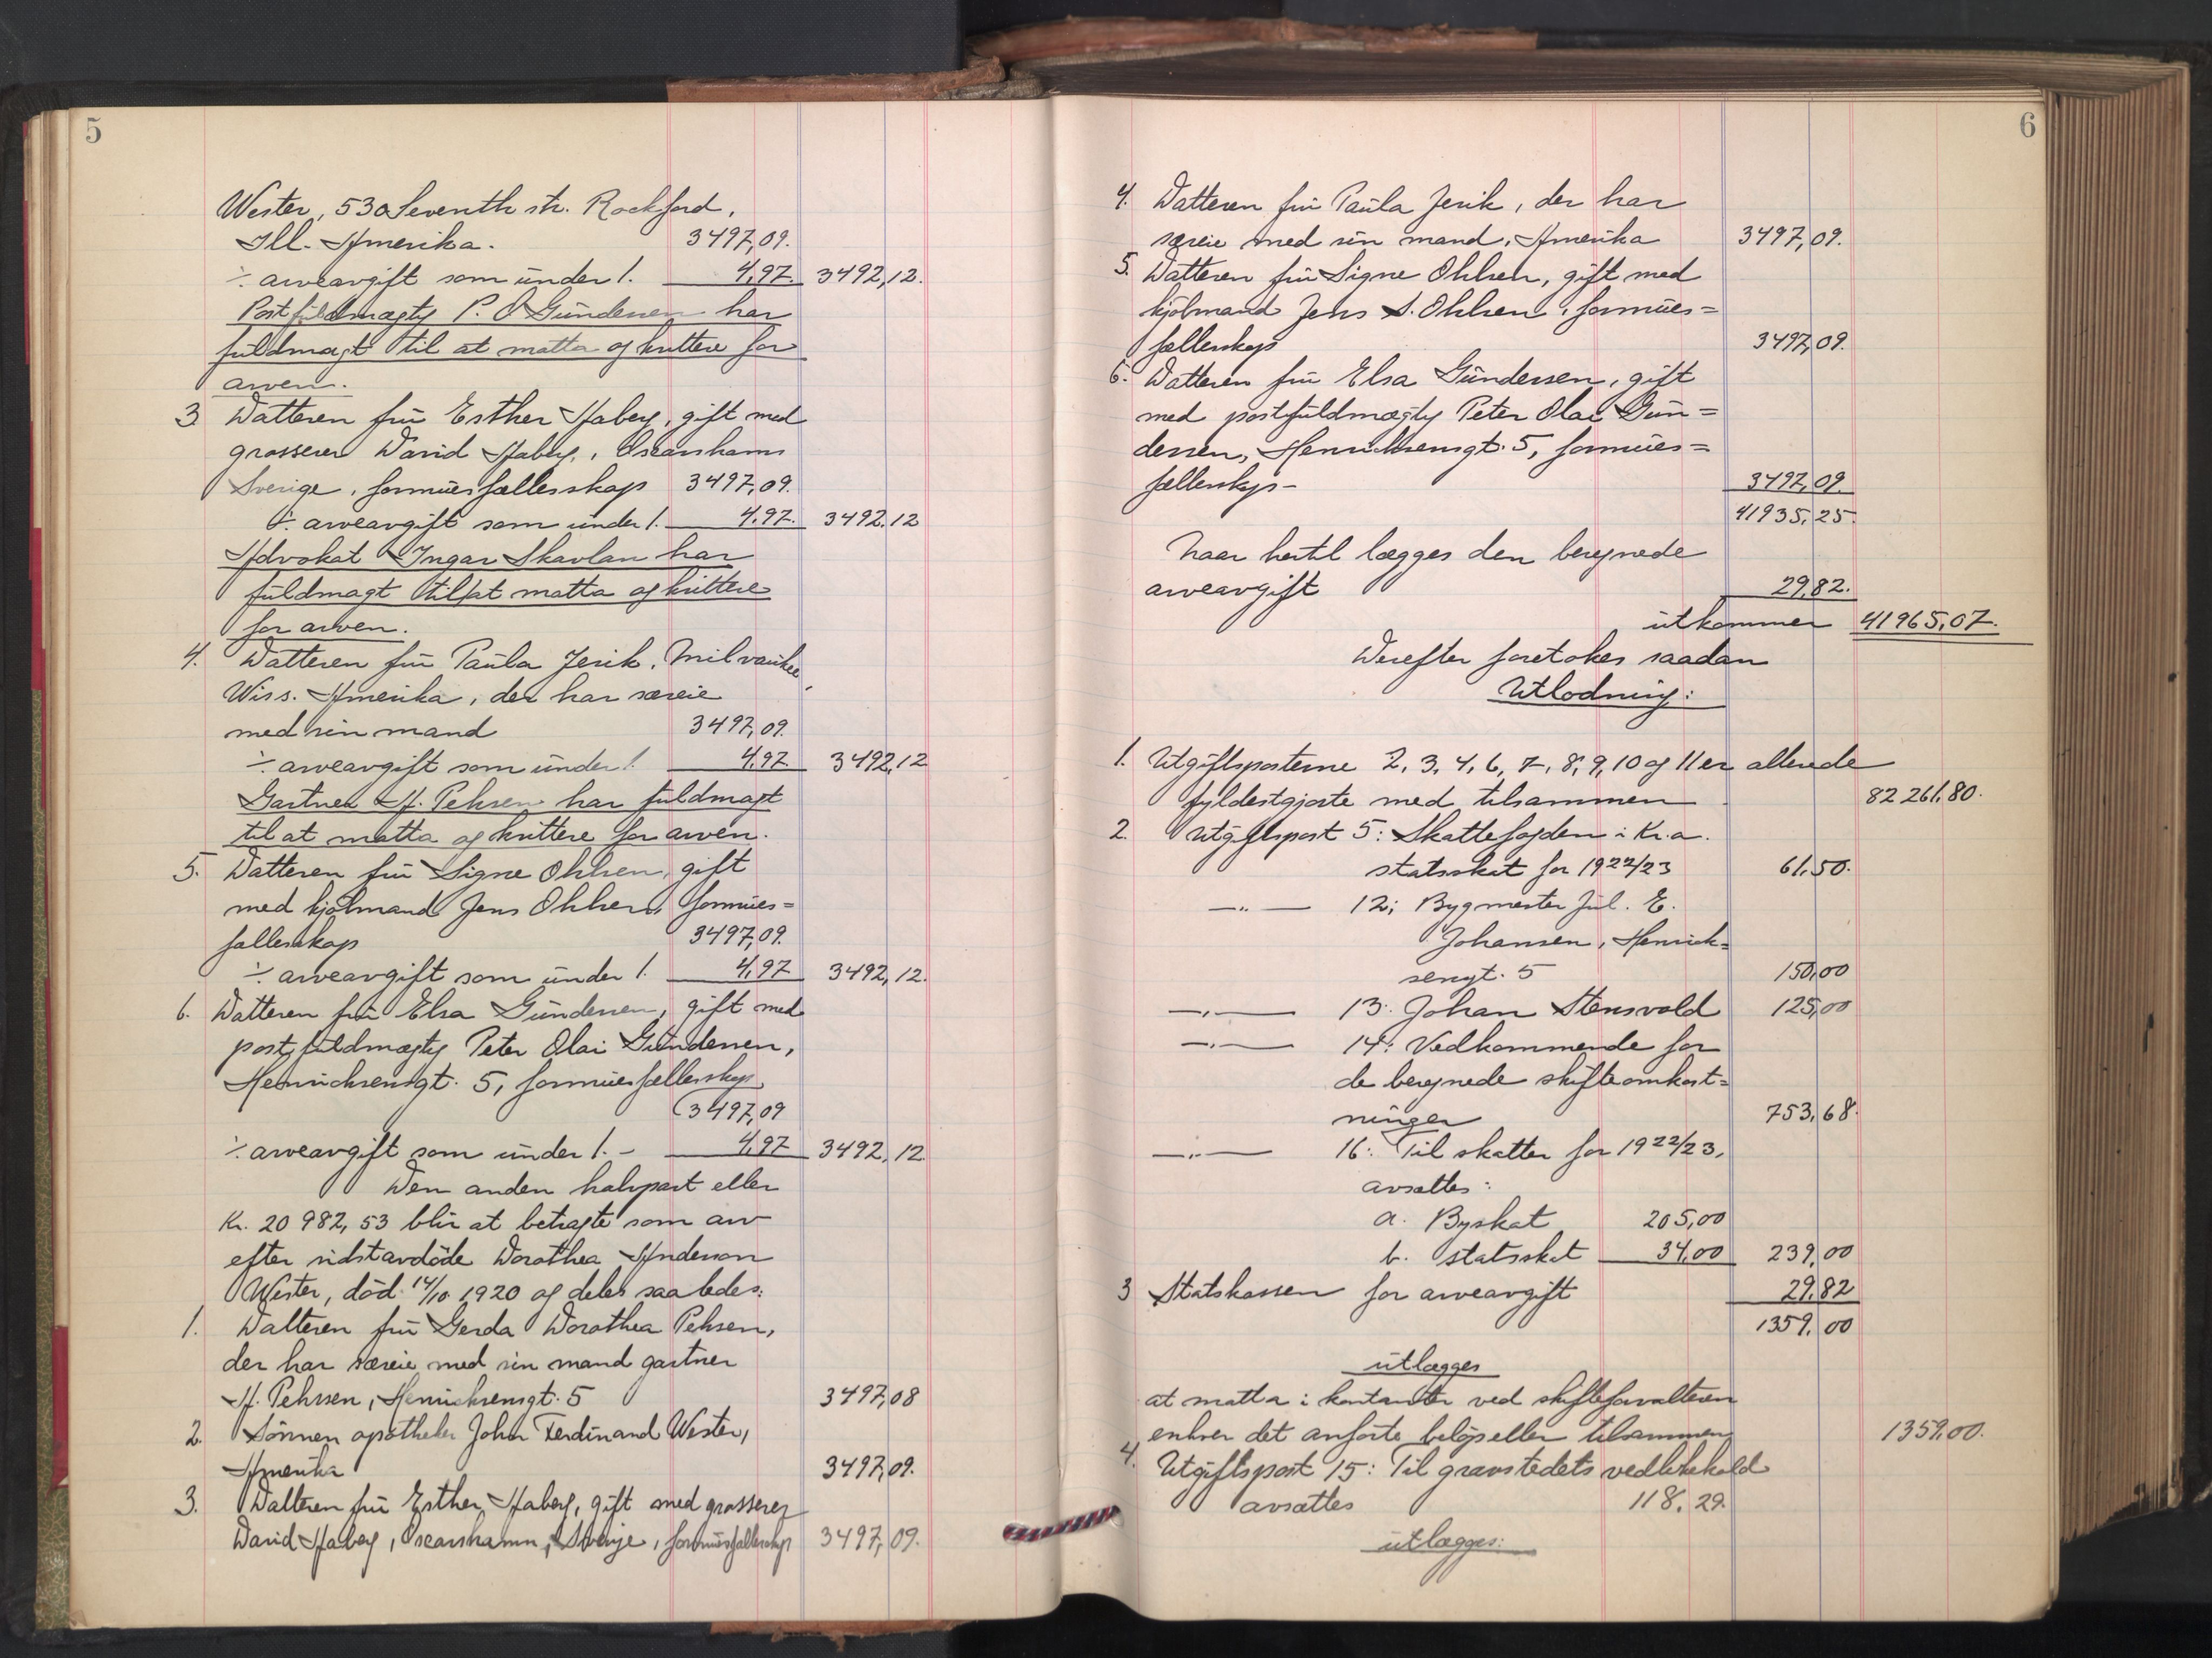 5
Wester, 530 Seventh str. Rockford,
Ill. Amerika. 3497,09.
÷ arveavgift som under 1. 4,97. 3492,12.
Postfuldmægtig P. O. Gundersen har
fuldmagt til at motta og kvittere for
arven.
3 Datteren fru Esther Haberg, gift med
grosserer David Haberg, Oscarshamn
Sverige, formuesfællesskap 3497,09.
÷ arveavgift som under 1. 4,97. 3492,12
Advokat Ingar Skavlan har
fuldmagt til at motta og kvittere
for arven.
4. Datteren fru Paula Jerik, Milvaukee,
Wiss. Amerika, der har særeie
med sin mand 3497,09.
÷ arveavgift som under 1. 4,97 3492,12
Gartner H. Pehrsen har fuldmagt
til at motta og kvittere for arven.
5. Datteren fru Signe Ohlsen, gift
med kjøbmand Jens Ohlsen, formues=
fællesskap 3497,09.
÷ arveavgift som under 1. 4,97 3492,12.
6. Datteren fru Elsa Gundersen, gift med
postfuldmægtig Peter Olai Gundersen,
Henrichsensgt. 5, formuesfællesskap
3497,09
÷ arveavgift som under 1. - 4,97 3492,12.
Den anden halvpart eller
Kr. 20 982,53 blir at betragte som arv
efter sidstavdøde Dorothea Anderson
Wester, død 14/10 1920 og deles saaledes:
1. Datteren fru Gerda Dorothea Pehrsen,
der har særeie med sin mand gartner
H. Pehrsen, Henrichsensgt. 5 3497,08
2. Sønnen apotheker John Ferdinand Wester,
Amerika 3497,09.
3. Datteren fru Esther Haberg, gift med grosserer
David Haberg, Oscarshamn, Sverige, formuesfællesskap 3497,09.
6
4. Datteren fru Paula Jerik, der har
særeie med sin mand, Amerika 3497,09.
5. Datteren fru Signe Ohlsen, gift med
kjøbmand Jens S. Ohlsen, formues=
fællesskap 3497,09.
6. Datteren fru Elsa Gundersen, gift
med postfuldmægtig Peter Olai Gun=
dersen, Henrichsensgt. 5, formues=
fællesskap - 3497,09.
41935,25.
Naar hertil lægges den beregnede
arveavgift 29,82.
utkommer 41965,07.
Derefter foretokes saadan
Utlodning:
1. Utgiftsposterne 2, 3, 4, 6, 7, 8, 9, 10 og 11 er allerede
fyldestgjorte med tilsammen 82 261,80.
2. Utgiftspost 5: Skattefogden i Kr.a.
statsskat for 1922/23 61,50.
—„— 12; Bygmester Jul. E.
Johansen, Henrich=
sensgt. 5 150,00
—„— 13: Johan Stensvold 125,00
—„— 14: Vedkommende for
de beregnede skifteomkost=
ninger 753,68.
—„— 16: Til skatter for 1922/23,
avsættes:
a. Byskat 205,00
b. statsskat 34,00 239,00
3 Statskassen for arveavgift 29,82
1359,00
utlægges
at motta i kontanter ved skifteforvalteren
enhver det anførte beløp eller tilsammen 1359,00.
4. Utgiftspost 15: Til gravstedets vedlikehold
avsættes 118,29.
utlægges: